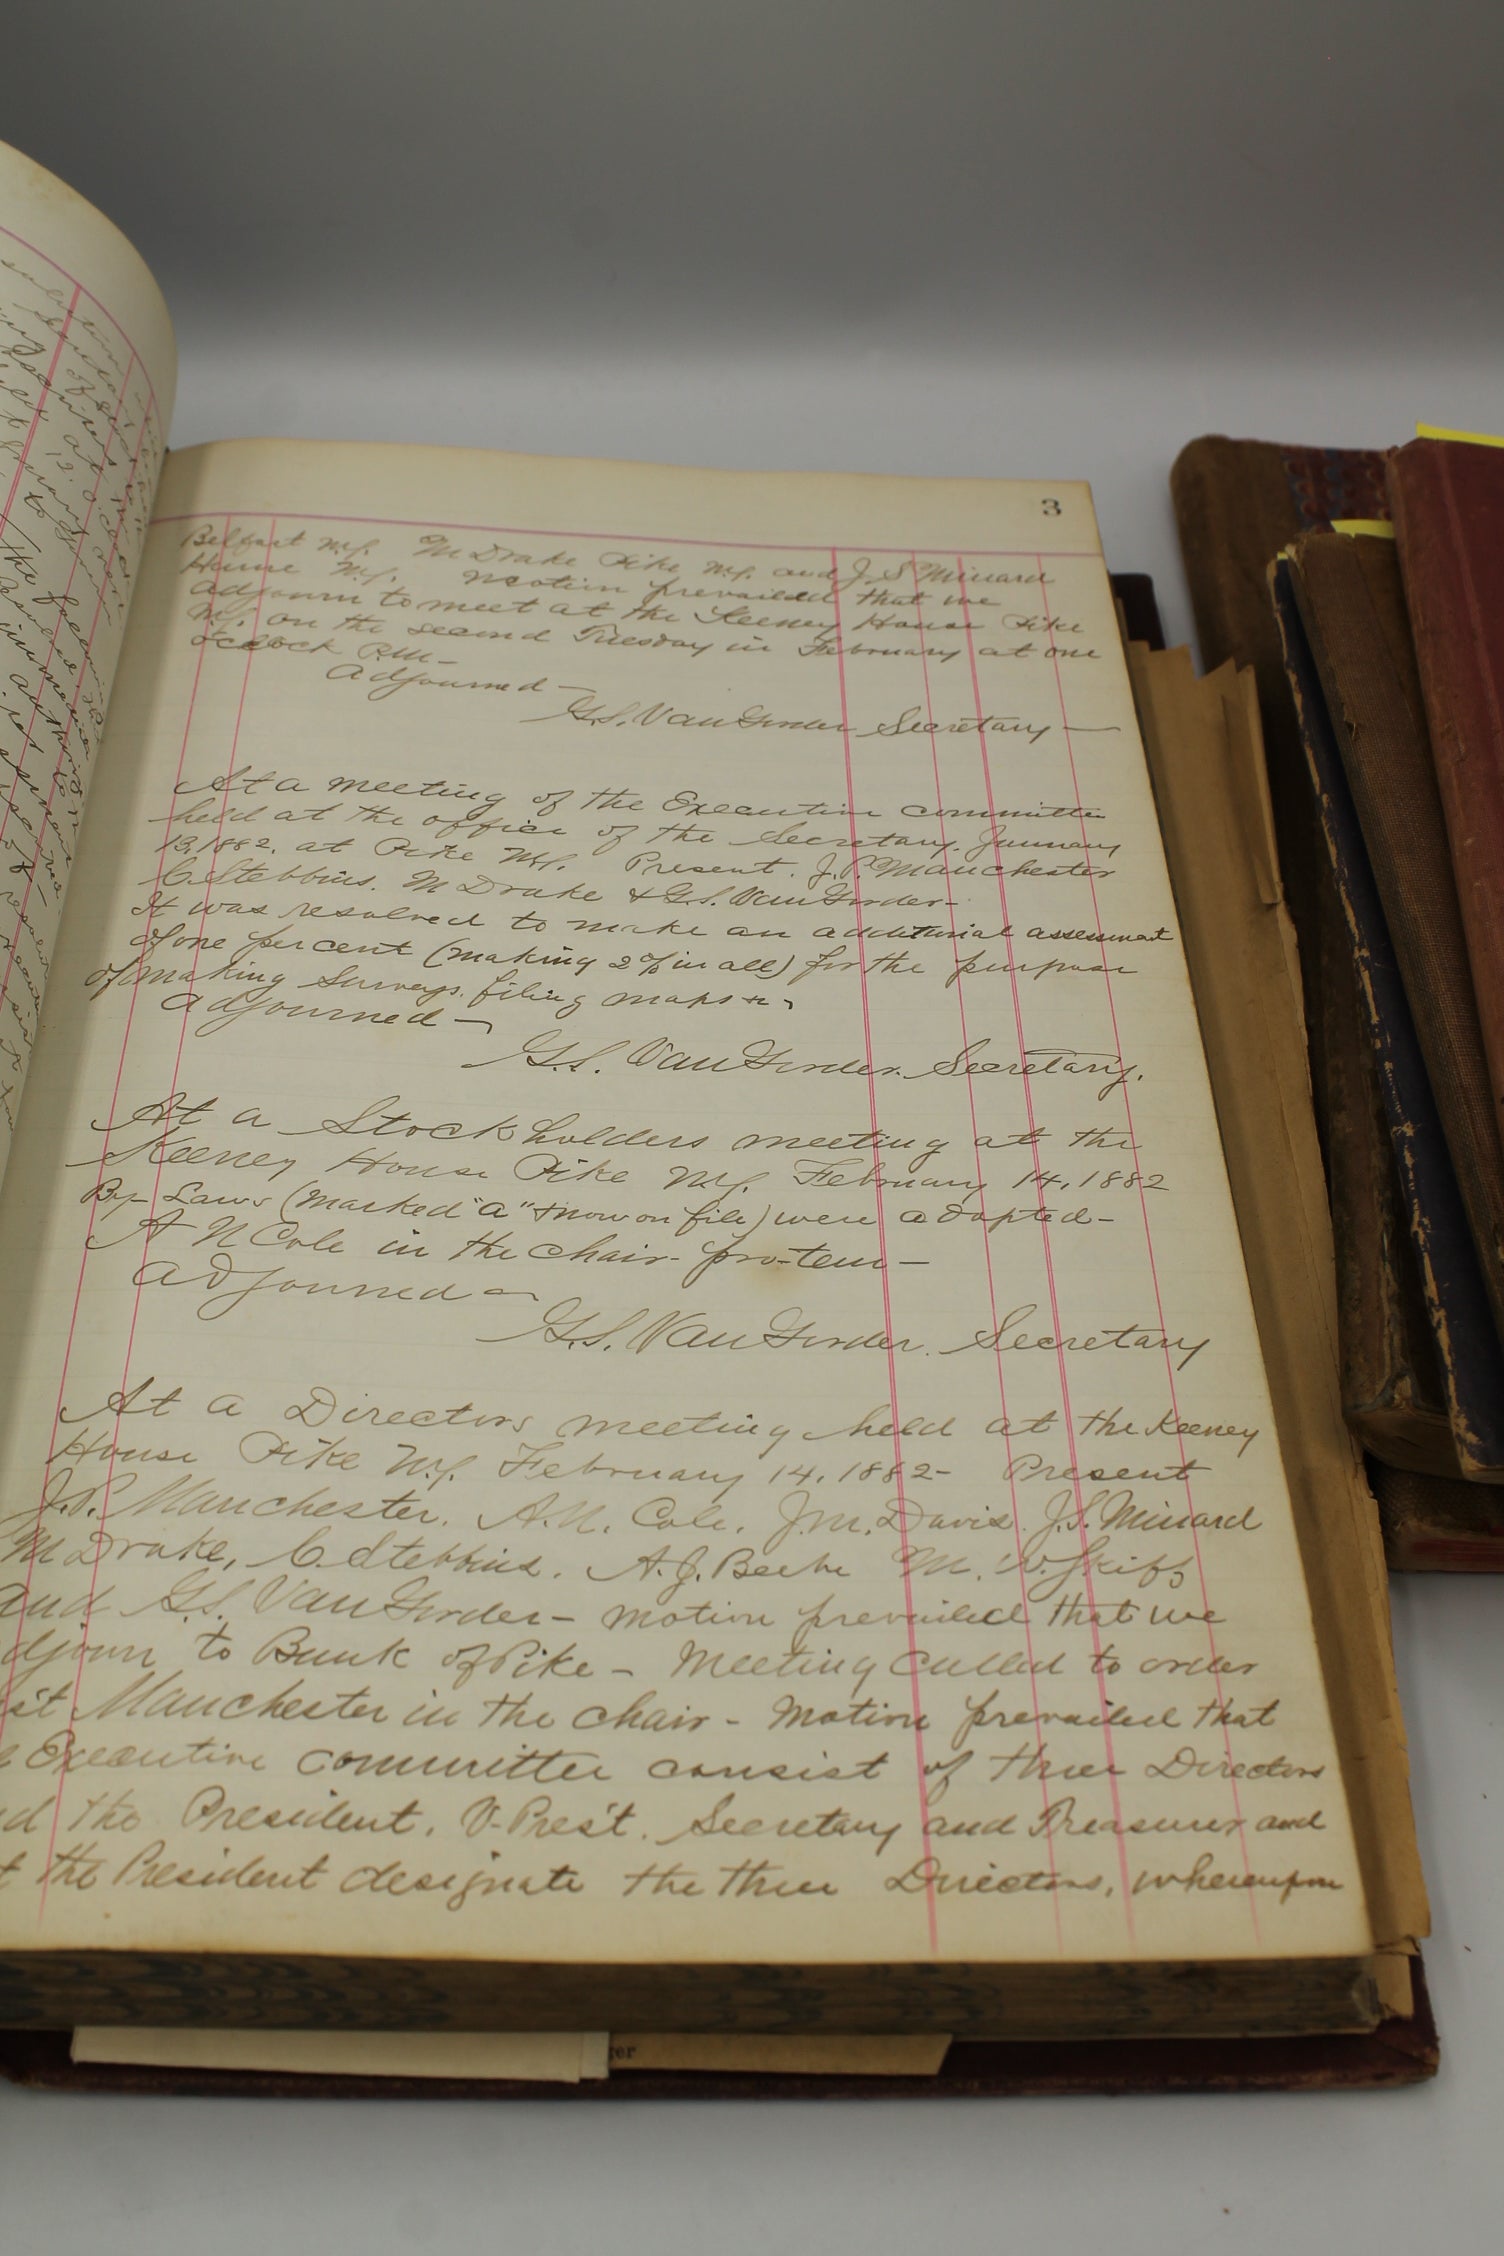 3
Belfast N.Y. M Drake Pike N.Y. and J. S Minard
Hume N.Y. Motion prevailed that we
adjourn to meet at the Keeney House Pike
N.Y. on the second Tuesday in February at one
oclock P.M-
Adjourned-
G.S. VanGorder Secretary-
At a meeting of the Executive committee
held at the office of the Secretary. January
13, 1882. at Pike N.Y. Present. J. P. Manchester
C. Stebbins. M Drake & G.S. VanGorder-
It was resolved to make an additional assessment
of one per cent (making 2% in all) for the purpose
of making Surveys. filing maps &c,
Adjourned-
G.S. VanGorder. Secretary.
At a Stockholders meeting at the
Keeney House Pike N.Y. February 14, 1882
By-Laws (marked "A" & now on file) were adopted-
A N Cole in the chair- pro-tem-
Adjourned-
G.S. VanGorder. Secretary
At a Directors meeting held at the Keeney
House Pike N.Y. February 14, 1882- Present
J.P. Manchester. A.N. Cole. J.M. Davis. J.S. Minard
M Drake, C. Stebbins. A.J. Beebe M. W. Skiff
and G.S. VanGorder- Motion prevailed that we
djourn to Bank of Pike- Meeting called to order
st Manchester in the chair- Motion prevailed that
e Executive committee consist of three Directors
d the President. V-Prest. Secretary and Treasurer and
t the President designate the three Directors, whereupon